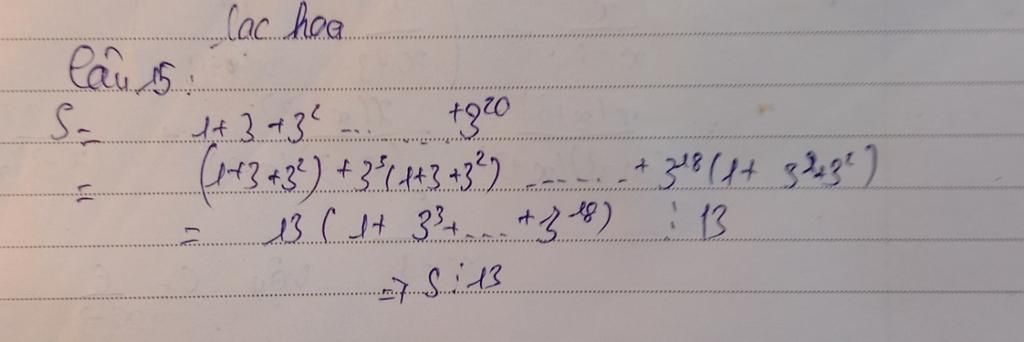 Cac hoa
Câu 15:
S = 1 + 3 + 3² ... ... + 3²⁰
= (1+3+3²) + 3³(1+3+3²) ....... + 3¹⁸(1+ 3+3²)
= 13 ( 1 + 3³ + ... + 3¹⁸) ⋮ 13
=> S ⋮ 13